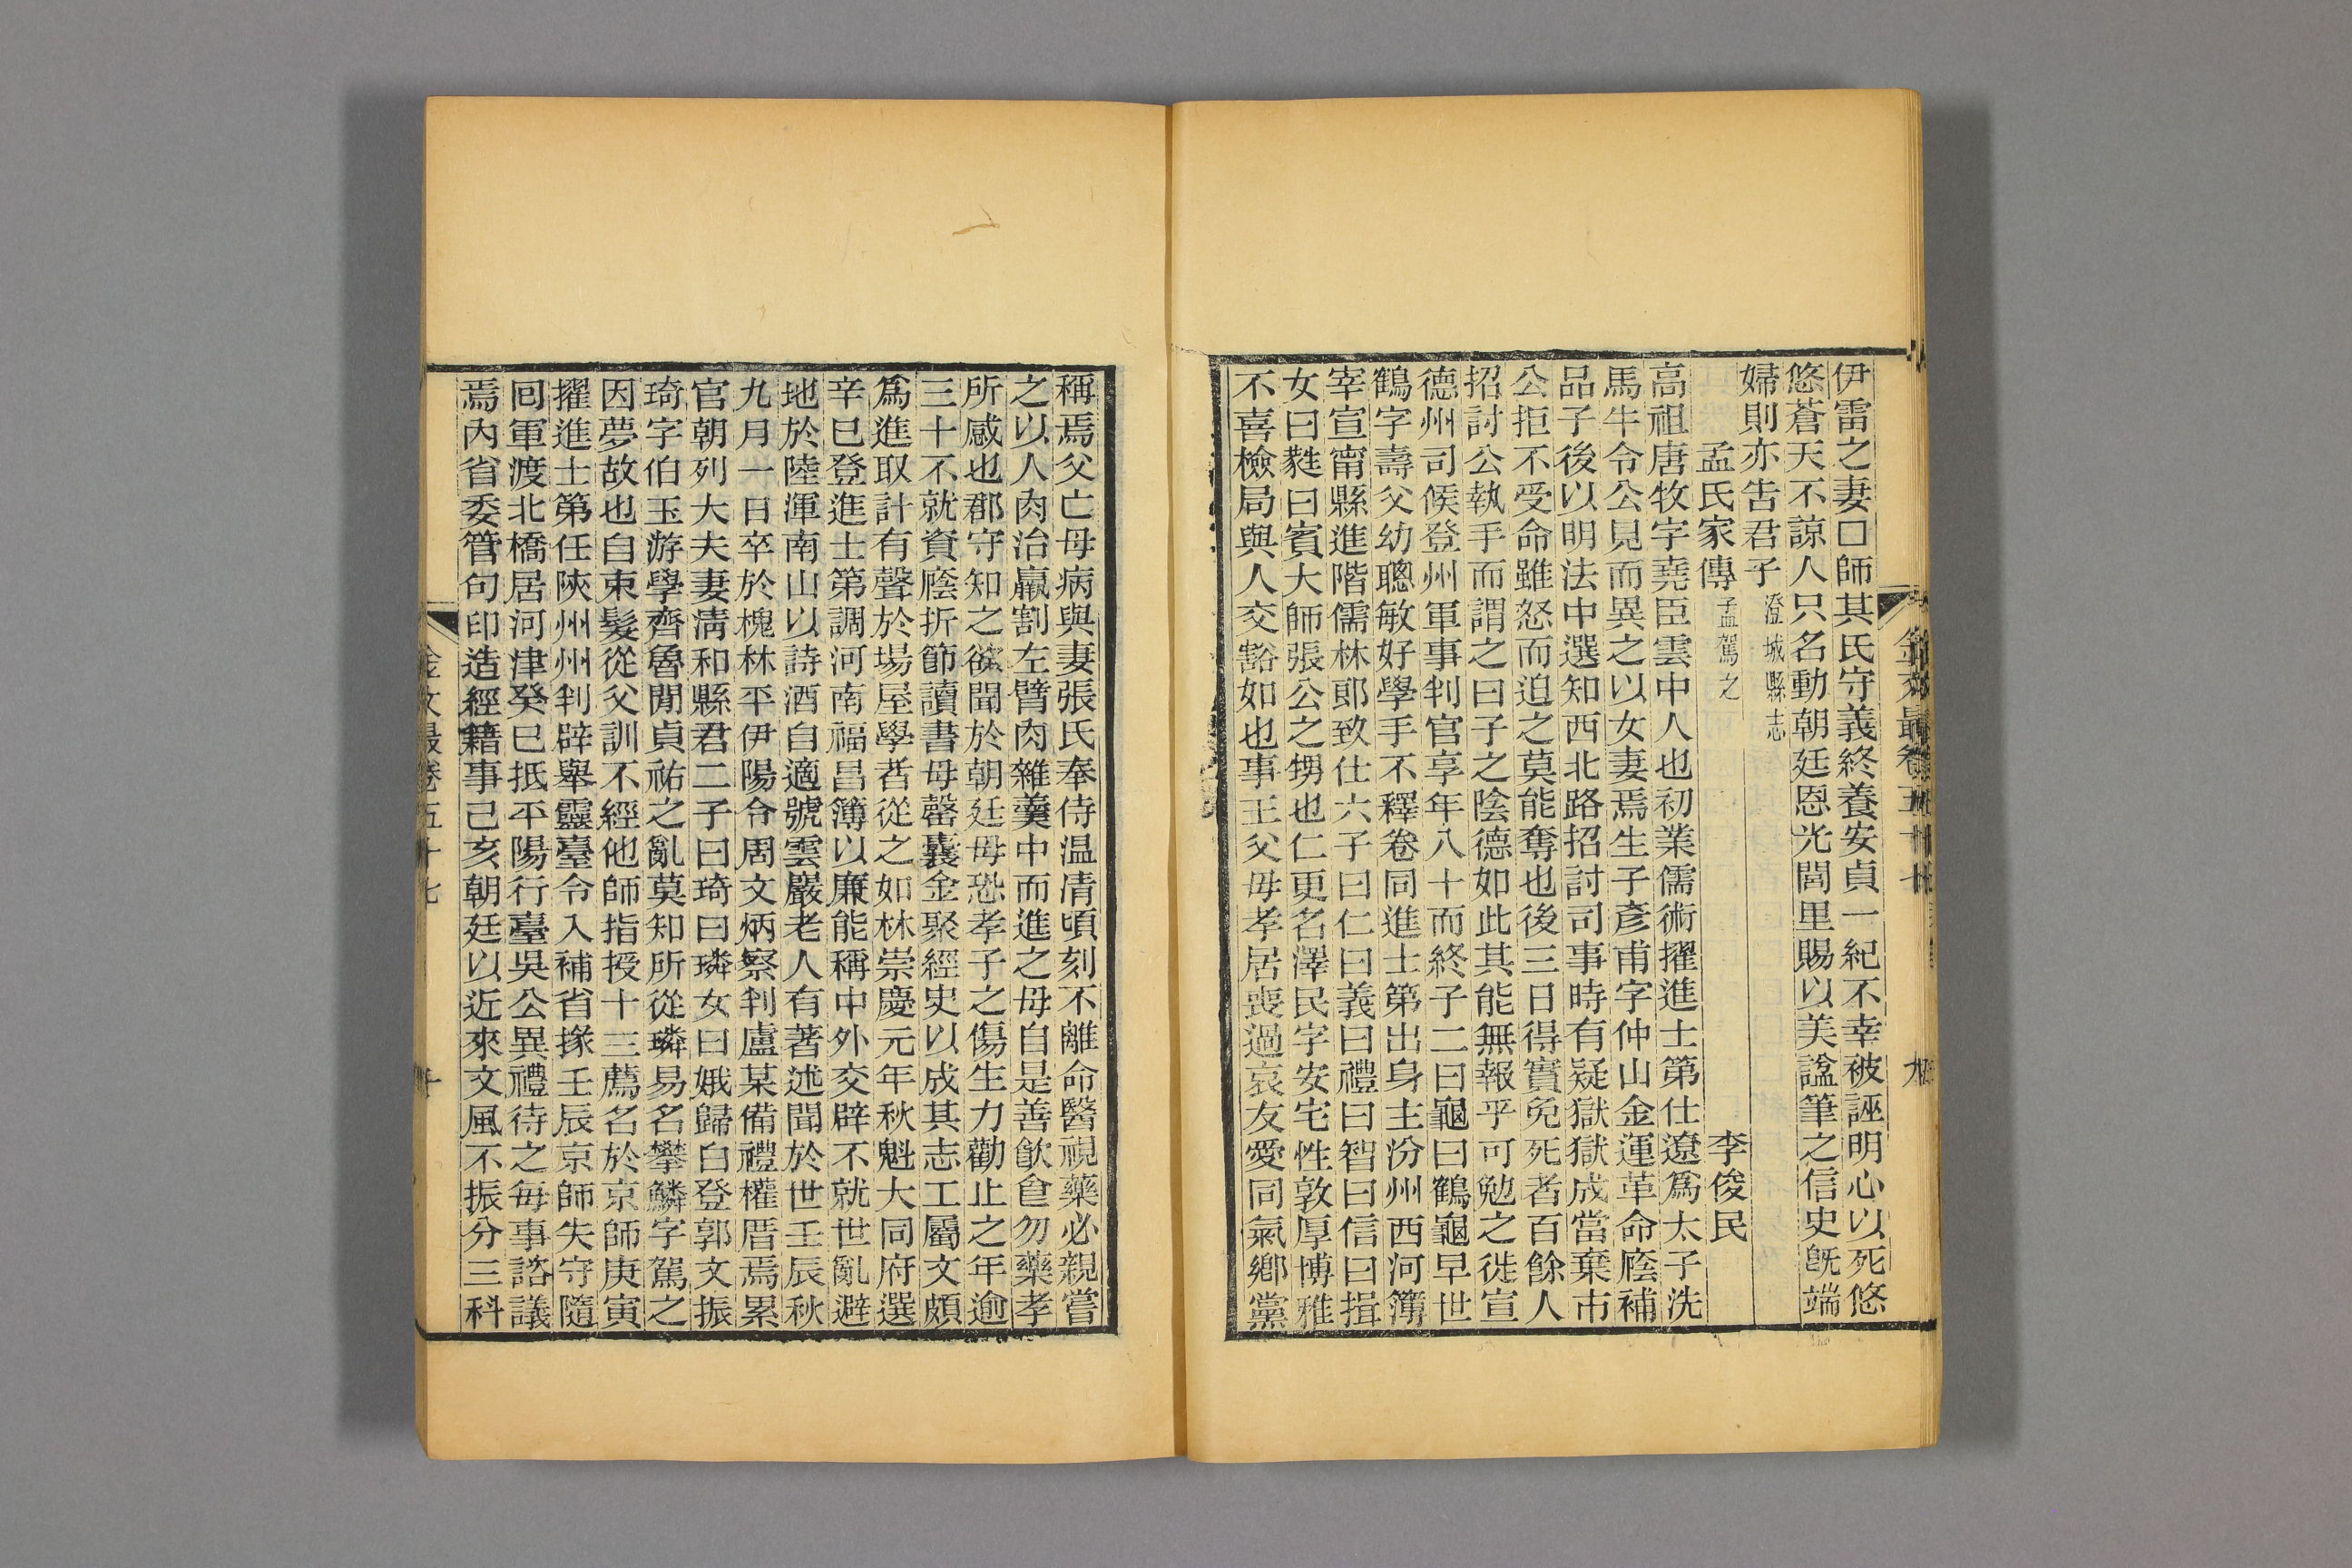 伊雷之妻□師其氏守義終養安貞一紀不幸被誣明心以死悠
悠蒼天不諒人只名動朝廷恩光閭里賜以美諡筆之信史旣端
婦則亦吿君子澄城縣志
孟氏家傳孟駕之 李俊民
高祖唐牧字堯臣雲中人也初業儒術擢進士第仕遼爲太子洗
馬牛令公見而異之以女妻焉生子彥甫字仲山金運革命廕補
品子後以明法中選知西北路招討司事時有疑獄獄成當棄市
公拒不受命雖怒而迫之莫能奪也後三日得實免死者百餘人
招討公執手而謂之曰子之陰德如此其能無報乎可勉之徙宣
德州司候登州軍事判官享年八十而終子二曰龜曰鶴龜早世
鶴字壽父幼聰敏好學手不釋卷同進士第出身主汾州西河簿
宰宣甯縣進階儒林郎致仕六子曰仁曰義曰禮曰智曰信曰揖
女曰㽔曰賓大師張公之甥也仁更名澤民字安宅性敦厚博雅
不喜檢局與人交豁如也事王父母孝居喪過哀友愛同氣鄉黨
金文最卷五十七 九
稱焉父亡母病與妻張氏奉侍温凊頃刻不離命醫視藥必親嘗
之以人肉治羸割左臂肉雜羹中而進之母自是善飮食勿藥孝
所感也郡守知之欲聞於朝廷母恐孝子之傷生力勸止之年逾
三十不就資廕折節讀書母罄囊金聚經史以成其志工屬文頗
爲進取計有聲於場屋學者從之如林崇慶元年秋魁大同府選
辛巳登進士第調河南福昌簿以廉能稱中外交辟不就世亂避
地於陸渾南山以詩酒自適號雲巖老人有著述聞於世壬辰秋
九月一日卒於槐林平伊陽令周文炳察判盧某備禮權厝焉累
官朝列大夫妻淸和縣君二子曰琦曰璘女曰娥歸白登郭文振
琦字伯玉游學齊魯閒貞祐之亂莫知所從璘易名攀鱗字駕之
因夢故也自束髮從父訓不經他師指授十三薦名於京師庚寅
擢進士第任陝州州判辟舉靈臺令入補省掾壬辰京師失守隨
囘軍渡北橋居河津癸巳抵平陽行臺吳公異禮待之每事諮議
焉內省委管句印造經籍事己亥朝廷以近來文風不振分三科
金文最卷五十七 十